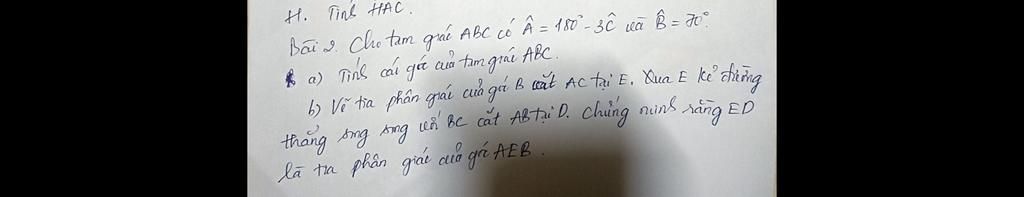 H. Tính HAC.
Bài 2. Cho tam giác ABC có Â = 180° - 3Ĉ và B̂ = 70°.
a) Tính các góc của tam giác ABC.
b) Vẽ tia phân giác của góc B cắt AC tại E. Qua E kẻ đường
thẳng song song với BC cắt AB tại D. Chứng minh rằng ED
là tia phân giác của góc AEB.